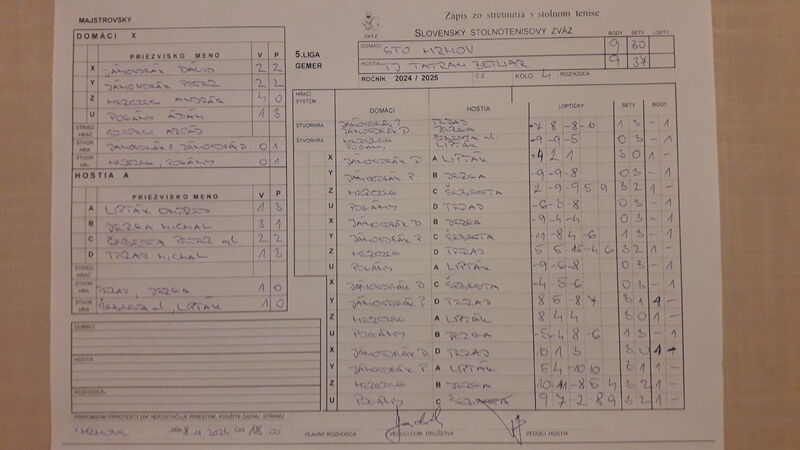 MAJSTROVSKÝ
Zápis zo stretnutia v stolnom tenise
SLOVENSKÝ STOLNOTENISOVÝ ZVÄZ
DOMÁCI X
PRIEZVISKO MENO V P
X JÁNOŠDEÁK DÁVID 2 2
Y JÁNOŠDEÁK PETER 2 2
Z HERCZEG ANDRÁS 4 0
U POGÁNY ÁDÁM 1 3
STRIED HRÁČ
STVOR HRA JÁNOŠDEÁK P, JÁNOŠDEÁK D. 0 1
STVOR HRA HERCZEG, POGÁNY 0 1
HOSTIA A
PRIEZVISKO MENO V P
A LIPTÁK ONDREJ 1 3
B JERGA MICHAL 3 1
C ŠEBESTA PETER ml 2 2
D MICHAL 1 3
STRIED HRÁČ
STVOR HRA JERGA 1 0
STVOR HRA ŠEBESTA ml, LIPTÁK 1 0
DOMÁCI
HOSTIA
ROZHODCA
PRIPOMIENKY/PROTESTY (AK NEPOSTAČUJE PRIESTOR, POUŽITE ZADNÚ STRANU
V HRHOVE DŇA 8.11.2024 ČAS 18.00
5.LIGA
GEMER
BODY SETY LOPTY
DOMÁCI STO HRHOV 9 30
HOSTIA TJ TATRAN BETLIAR 9 37
ROČNÍK 2024 / 2025 CZ KOLO 4 ROZHODCA
HRACÍ SYSTÉM DOMÁCI HOSTIA LOPTIČKY SETY BODY
STVORHRA JÁNOŠDEÁK P. JÁNOŠDEÁK D. JERGA -7 8 -8 -10 1 3 - 1
STVORHRA HERCZEG POGÁNY ŠEBESTA ml LIPTÁK -9 -9 -5 0 3 - 1
X JÁNOŠDEÁK D. A LIPTÁK 4 2 1 3 0 1 -
Y JÁNOŠDEÁK P. B JERGA -9 -9 -8 0 3 - 1
Z HERCZEG C ŠEBESTA 2 -9 -9 5 9 3 2 1 -
U POGÁNY D -6 -3 -8 0 3 - 1
X JÁNOŠDEÁK D. B JERGA -9 -4 -4 0 3 - 1
Y JÁNOŠDEÁK P. C ŠEBESTA -11 -8 4 -6 1 3 - 1
Z HERCZEG D 5 5 -15 -4 6 3 2 1 -
U POGÁNY A LIPTÁK -9 -6 -8 0 3 - 1
X JÁNOŠDEÁK D C ŠEBESTA -4 -5 -6 0 3 - 1
Y JÁNOŠDEÁK P. D 8 5 -8 7 3 1 1 -
Z HERCZEG A LIPTÁK 8 4 4 3 0 1 -
U POGÁNY B JERGA -5 -4 8 -6 1 3 - 1
X JÁNOŠDEÁK D. D 10 1 3 3 0 1 -
Y JÁNOŠDEÁK P. A LIPTÁK 5 4 -10 10 3 1 1 -
Z HERCZEG B JERGA 10 -11 -8 5 4 3 2 1 -
U POGÁNY C ŠEBESTA 9 7 -2 -8 9 3 2 1 -
HLAVNÝ ROZHODCA VEDÚCI DOM. DRUŽSTVA VEDÚCI HOSTIA